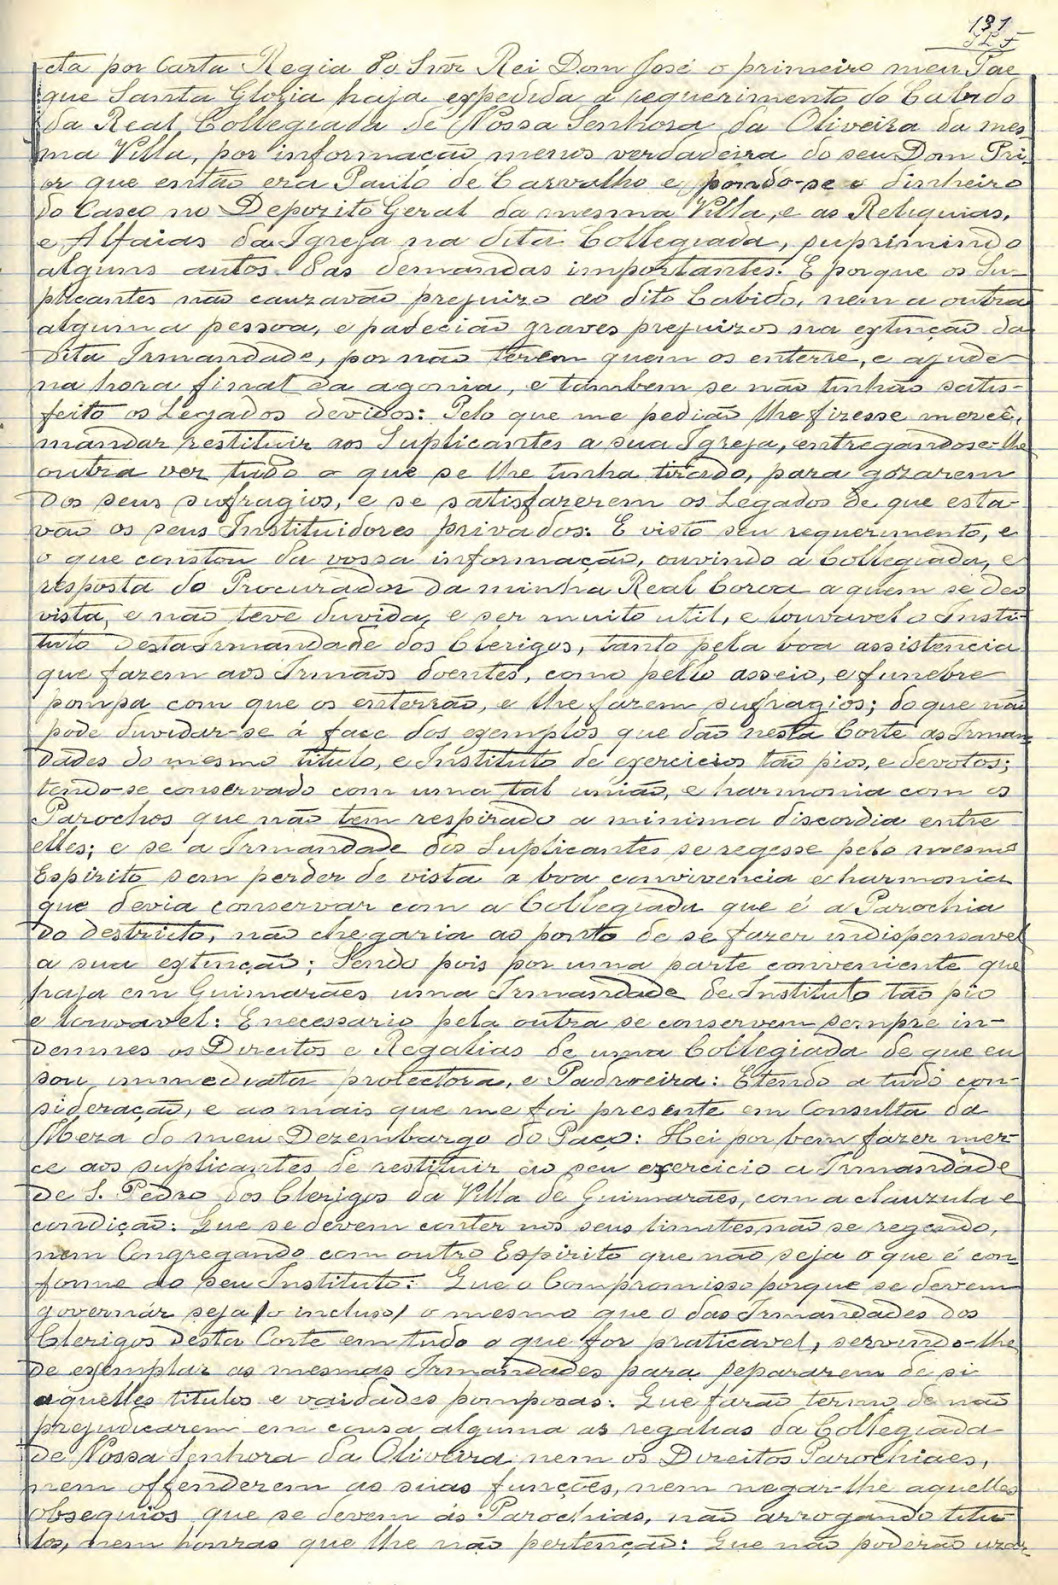 131
cta por Carta Regia do Snr. Rei Dom José o primeiro meu Pae
que Santa Gloria haja expedida a requerimento do Cabido
da Real Collegiada de Nossa Senhora da Oliveira da mes-
ma Villa, por informação menos verdadeira do seu Dom Pri-
or que então era Paulo de Carvalho e pondo-se o dinheiro
do Casco no Depozito Geral da mesma Villa, e as Reliquias,
e Alfaias da Igreja na dita Collegiada, suprimindo
alguns autos das demandas importantes: E porque os Su-
plicantes não cauzavão prejuizo ao dito Cabido, nem a outra
alguma pessoa, e padecião graves prejuizos na extinção da
dita Irmandade, por não terem quem os enterre, e ajude
na hora final da agonia, e tambem se não tinhão satis-
feito os Legados devidos: Pelo que me pedião lhe fizesse mercê,
mandar restituir aos Suplicantes a sua Igreja, entregandose-lhe
outra vez tudo o que se lhe tinha tirado, para gozarem
dos seus sufragios, e se satisfazerem os Legados de que esta-
vão os seus Instituidores privados: E visto seu requerimento, e
o que constou da vossa informação, ouvindo a Collegiada, e
resposta do Procurador da minha Real Coroa a quem se deo
vista, e não teve duvida, e ser muito util, e louvavel o Insti-
tuto desta Irmandade dos Clerigos, tanto pela boa assistencia
que fazem aos Irmãos doentes, como pello asseio, e funebre
pompa com que os enterrão, e lhe fazem sufragios; do que não
pode duvidar-se á face dos exemplos que dão nesta Corte as Irman-
dades do mesmo titulo, e Instituto de exercicios tão pios, e devotos;
tendo-se conservado com uma tal união, e harmonia com os
Parochos que não tem respirado a minima discordia entre
elles; e se a Irmandade dos Suplicantes se regesse pelo mesmo
Espirito sem perder de vista a boa convivencia e harmonia
que devia conservar com a Collegiada que é a Parochia
do destricto, não chegaria ao ponto de se fazer indispensavel
a sua extinção; Sendo pois por uma parte conveniente que
haja em Guimarães uma Irmandade de Instituto tão pio
e louvavel: E necessario pela outra se conservem sempre in-
demnes os Direitos e Regalias de uma Collegiada de que eu
sou immediata protectora, e Padroeira: E tendo a tudo con-
sideração, e ao mais que me foi presente em Consulta da
Meza do meu Dezembargo do Paço: Hei por bem fazer mer-
ce aos suplicantes de restituir ao seu exercicio a Irmandade
de S. Pedro dos Clerigos da Villa de Guimarães, com a clauzula e
condição: Que se devem conter nos seus limites não se regendo,
nem Congregando com outro Espirito que não seja o que é con-
forme ao seu Instituto: Que o Compromisso porque se devem
governar seja /o incluso/ o mesmo que o das Irmandades dos
Clerigos desta Corte em tudo o que for praticavel, servindo-lhe
de exemplar as mesmas Irmandades para separarem de si
aquelles titulos e vaidades pomposas: Que farão termo de não
prejudicarem em cousa alguma as regalias da Collegiada
de Nossa Senhora da Oliveira nem os Direitos Parochiaes,
nem offenderem as suas funções, nem negar-lhe aquelles
obsequios que se devem ás Parochias, não arrogando titu-
los, nem honras que lhe não pertenção: Que não poderão uzar